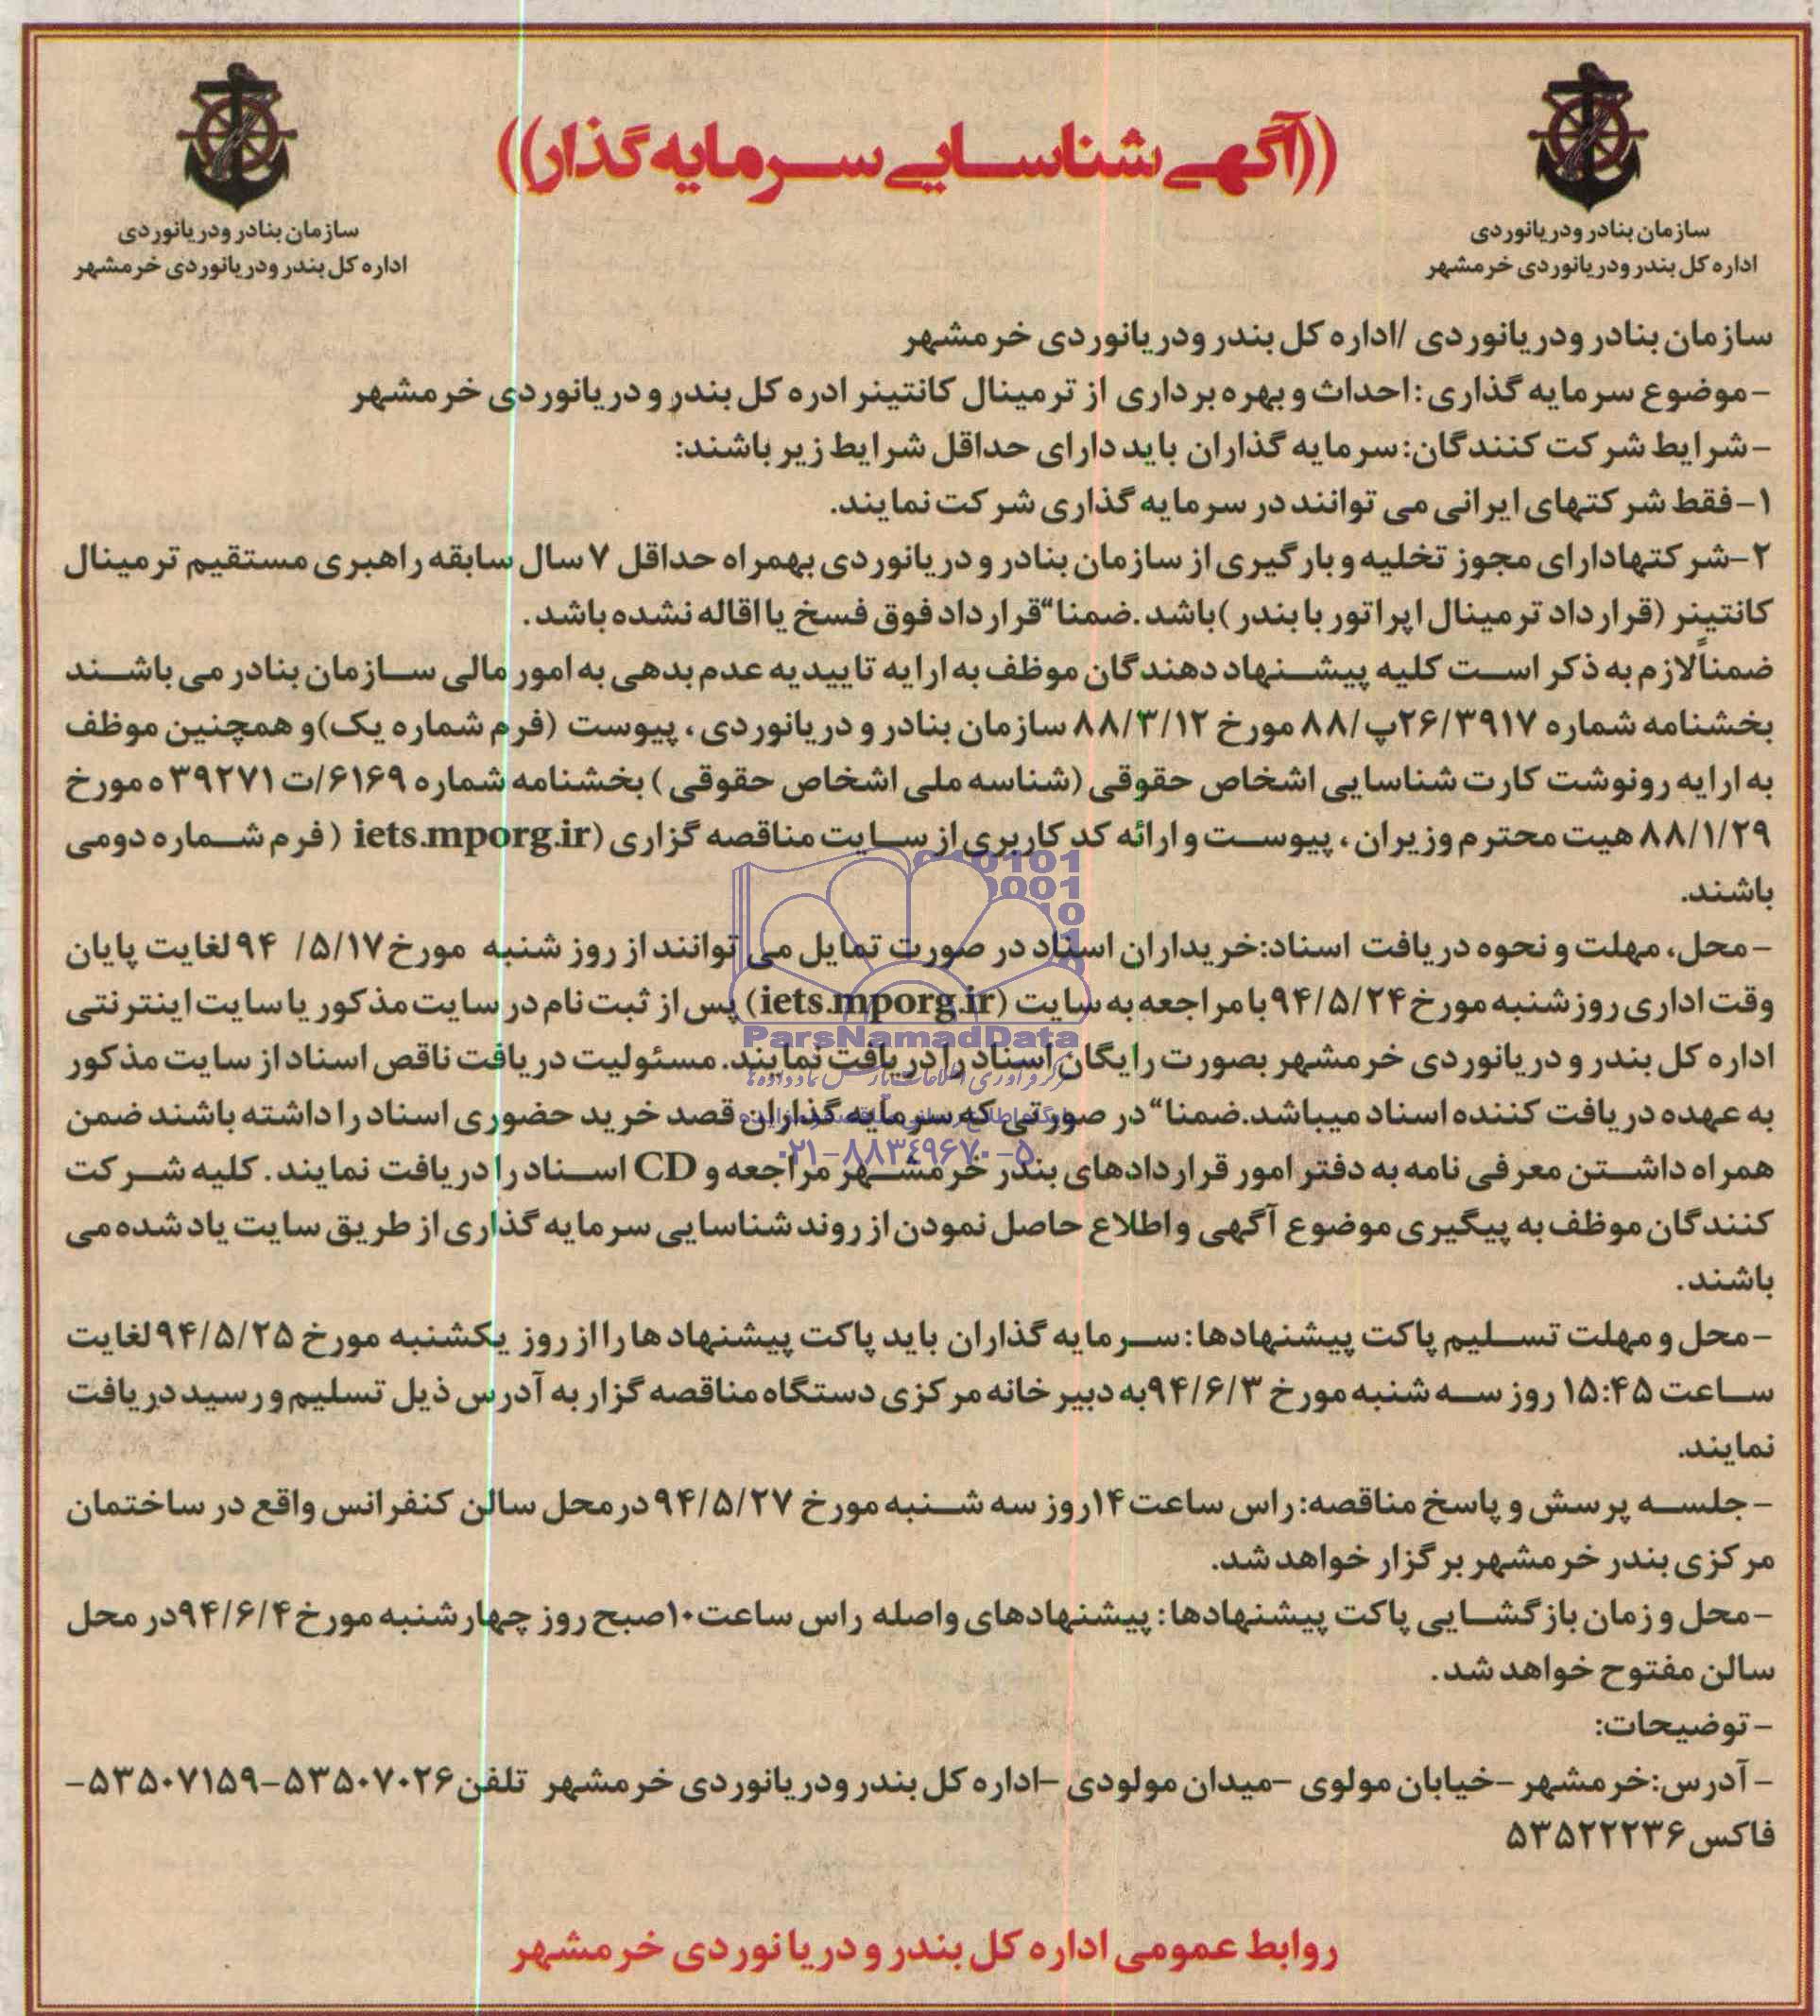 ((آگهی شناسایی سرمایه گذار))
سازمان بنادر ودریانوردی
اداره کل بندر ودریانوردی خرمشهر
سازمان بنادر ودریانوردی
اداره کل بندر ودریانوردی خرمشهر
سازمان بنادر ودریانوردی /اداره کل بندر ودریانوردی خرمشهر
-موضوع سرمایه گذاری:احداث و بهره برداری از ترمینال کانتینر ادره کل بندر و دریانوردی خرمشهر
-شرایط شرکت کنندگان:سرمایه گذاران باید دارای حداقل شرایط زیر باشند:
۱-فقط شرکتهای ایرانی می توانند در سرمایه گذاری شرکت نمایند.
۲-شرکتهادارای مجوز تخلیه و بارگیری از سازمان بنادر و دریانوردی بهمراه حداقل ۷ سال سابقه راهبری مستقیم ترمینال
کانتینر (قرارداد ترمینال اپراتور با بندر)باشد.ضمنا“قرارداد فوق فسخ یا اقاله نشده باشد.
ضمناًلازم به ذکر است کلیه پیشنهاد دهندگان موظف به ارایه تاییدیه عدم بدهی به امور مالی سازمان بنادر می باشند
بخشنامه شماره ۲۶/۳۹۱۷پ/۸۸ مورخ ۸۸/۳/۱۲ سازمان بنادر و دریانوردی، پیوست (فرم شماره یک)و همچنین موظف
به ارایه رونوشت کارت شناسایی اشخاص حقوقی (شناسه ملی اشخاص حقوقی) بخشنامه شماره ۶۱۶۹/ت۳۹۲۷۱ ه مورخ
۸۸/۱/۲۹ هیت محترم وزیران، پیوست و ارائه کد کاربری از سایت مناقصه گزاری (iets.mporg.ir ( فرم شماره دومی
باشند.
-محل، مهلت و نحوه دریافت اسناد:خریداران اسناد در صورت تمایل می توانند از روز شنبه مورخ۵/۱۷/ ۹۴لغایت پایان
وقت اداری روز شنبه مورخ۹۴/۵/۲۴با مراجعه به سایت (iets.mporg.ir) پس از ثبت نام در سایت مذکور یا سایت اینترنتی
اداره کل بندر و دریانوردی خرمشهر بصورت رایگان اسناد را دریافت نمایند. مسئولیت دریافت ناقص اسناد از سایت مذکور
به عهده دریافت کننده اسناد میباشد.ضمنا“ در صورتی که سرمایه گذاران قصد خرید حضوری اسناد را داشته باشند ضمن
همراه داشتن معرفی نامه به دفتر امور قراردادهای بندر خرمشهر مراجعه و CD اسناد را دریافت نمایند. کلیه شرکت
کنندگان موظف به پیگیری موضوع آگهی واطلاع حاصل نمودن از روند شناسایی سرمایه گذاری از طریق سایت یاد شده می
باشند.
-محل و مهلت تسلیم پاکت پیشنهادها:سرمایه گذاران باید پاکت پیشنهاد ها را از روز یکشنبه مورخ ۹۴/۵/۲۵لغایت
ساعت ۱۵:۴۵ روز سه شنبه مورخ ۹۴/۶/۳به دبیرخانه مرکزی دستگاه مناقصه گزار به آدرس ذیل تسلیم و رسید دریافت
نمایند.
-جلسه پرسش و پاسخ مناقصه:راس ساعت ۱۴روز سه شنبه مورخ ۹۴/۵/۲۷ درمحل سالن کنفرانس واقع در ساختمان
مرکزی بندر خرمشهر برگزار خواهد شد.
-محل و زمان بازگشایی پاکت پیشنهادها: پیشنهادهای واصله راس ساعت۱۰صبح روز چهارشنبه مورخ۹۴/۶/۴در محل
سالن مفتوح خواهد شد.
-توضیحات:
-آدرس:خرمشهر-خیابان مولوی -میدان مولودی -اداره کل بندر ودریانوردی خرمشهر تلفن۵۳۵۰۷۰۲۶-۵۳۵۰۷۱۵۹-
فاکس۵۳۵۲۲۲۳۶
روابط عمومی اداره کل بندر و دریانوردی خرمشهر
ParsNamadData
۰۲۱-۸۸۳۴۹۶۷۰-۵